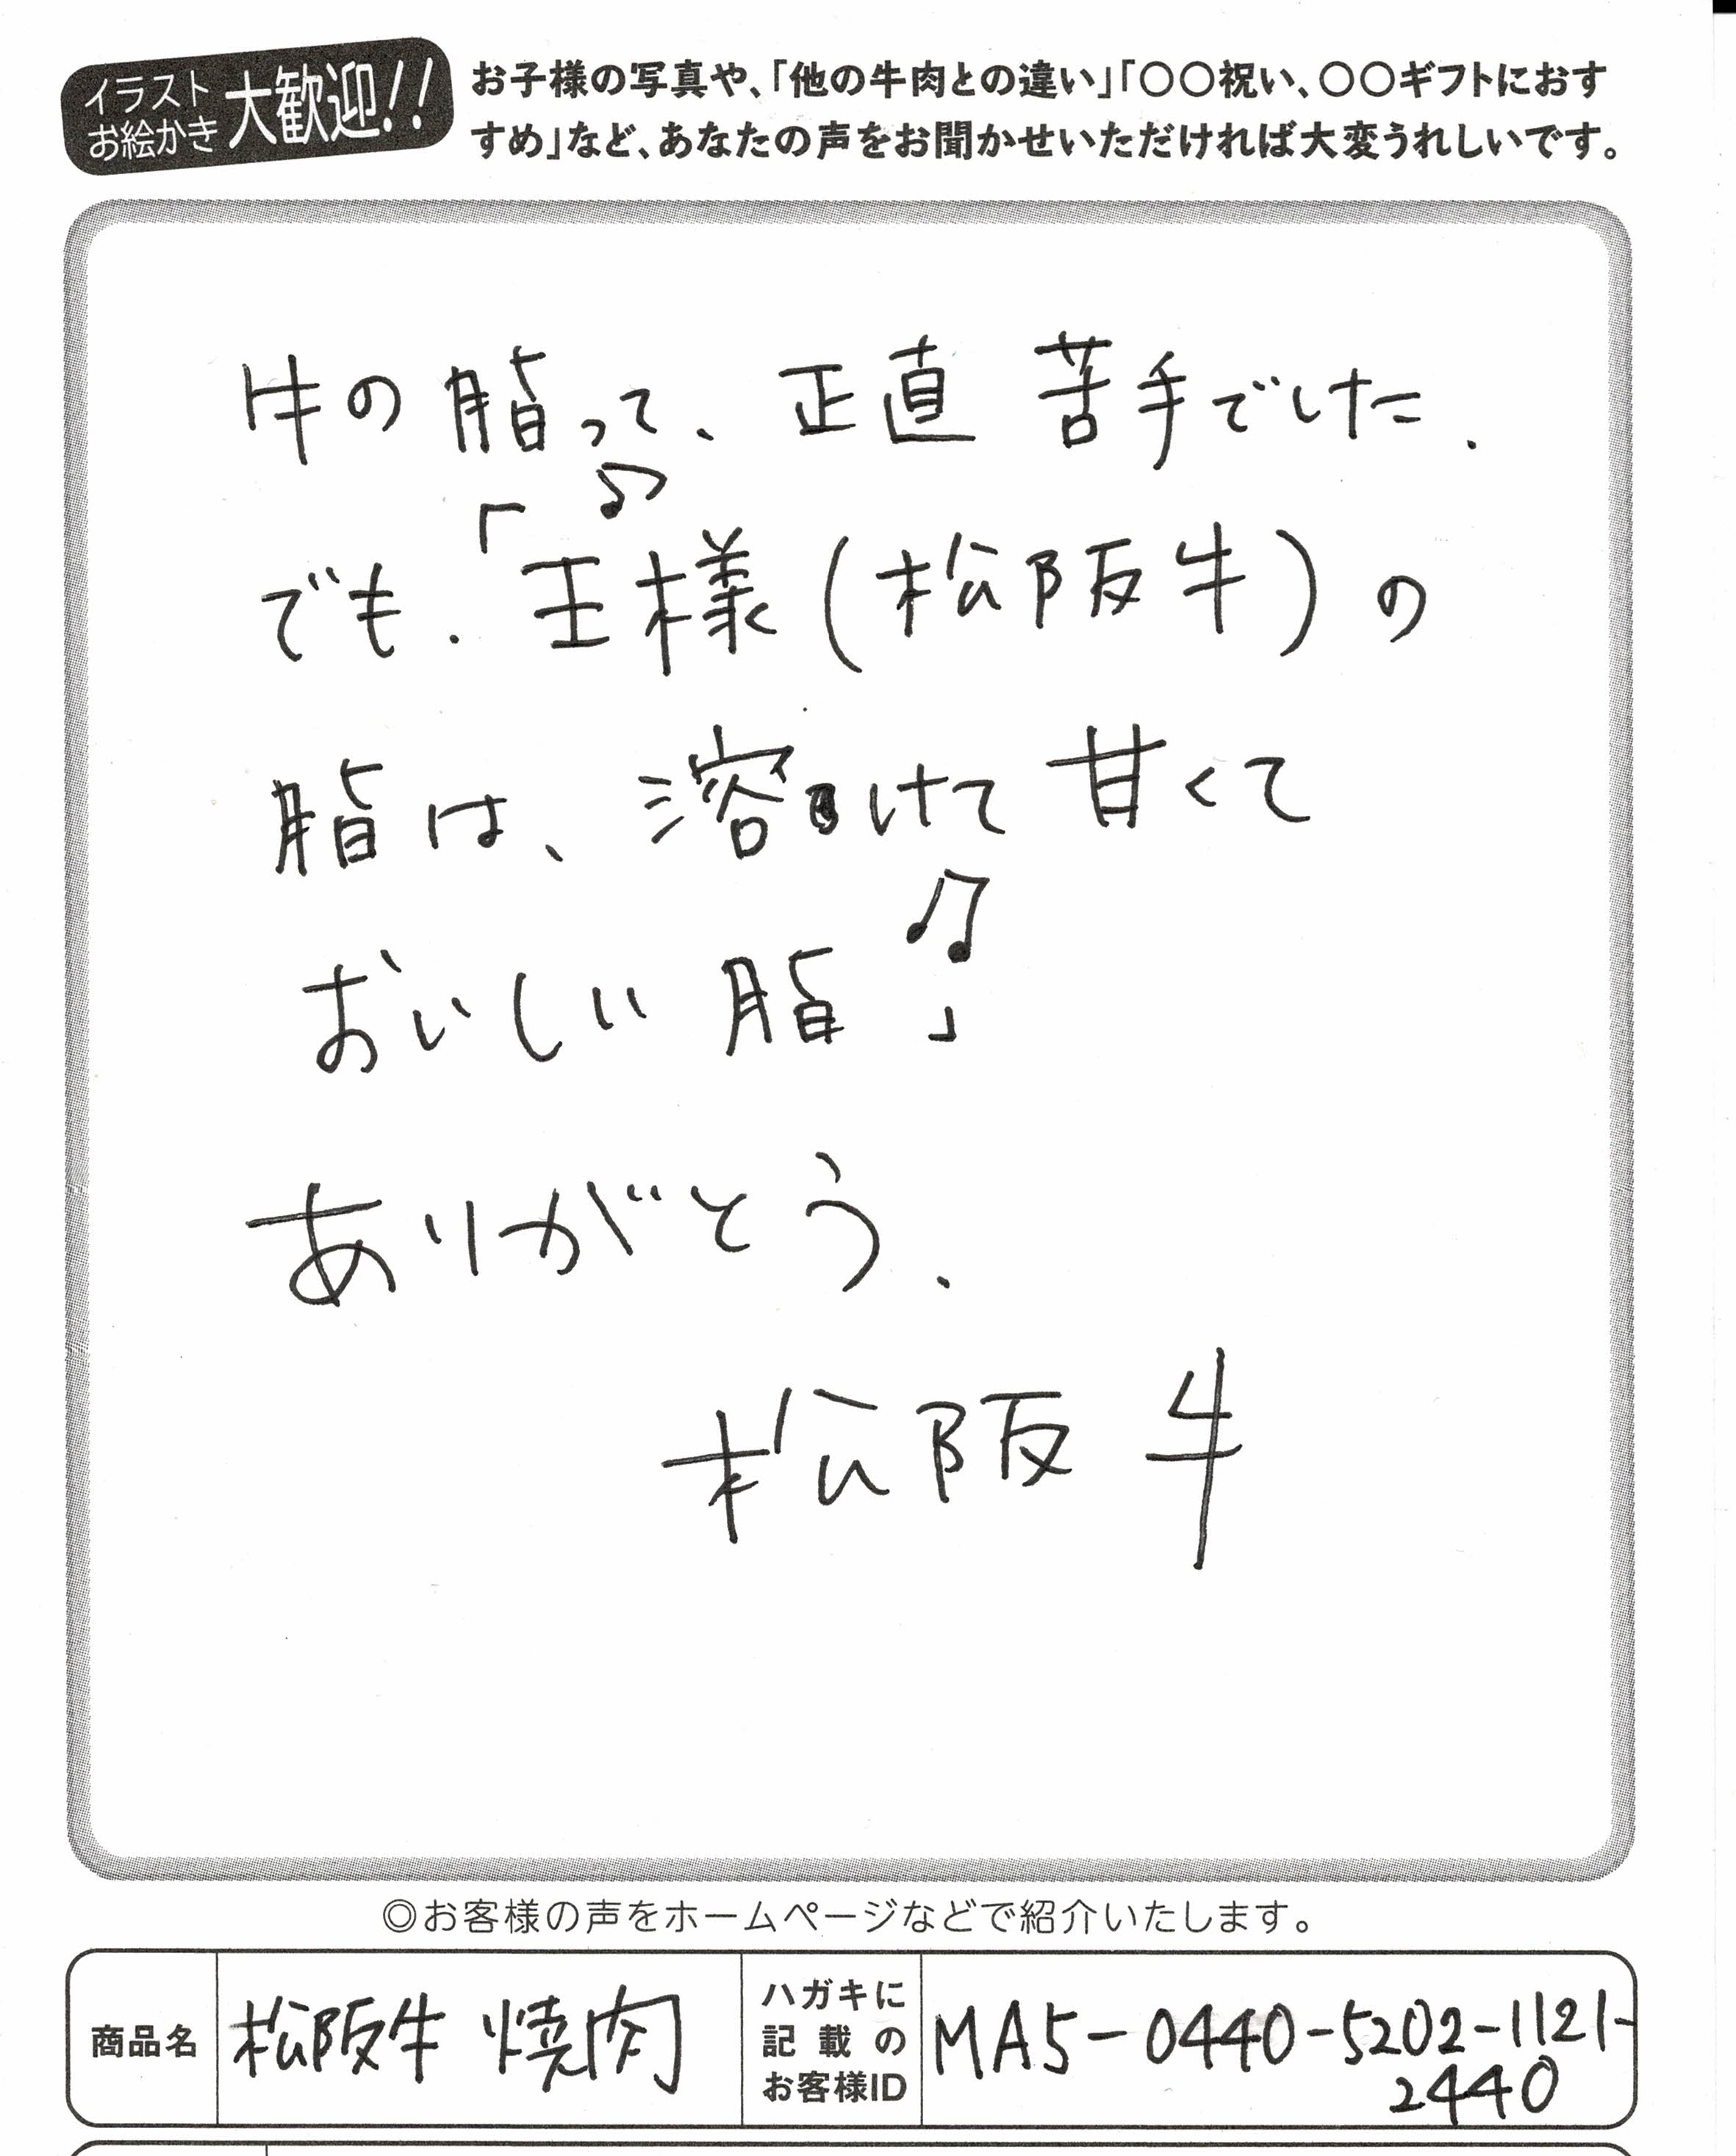 イラスト
お絵かき
大歓迎!!
お子様の写真や、「他の牛肉との違い」「〇〇祝い、〇〇ギフトにおす
すめ」など、あなたの声をお聞かせいただければ大変うれしいです。
牛の脂って、正直 苦手でした.
♫
でも.「王様(松阪牛)の
脂は、溶けて甘くて
おいしい脂♫」
ありがとう.
松阪牛
◎お客様の声をホームページなどで紹介いたします。
商品名
松阪牛 焼肉
ハガキに
記載の
お客様ID
MA5-0440-5202-1121-
2440